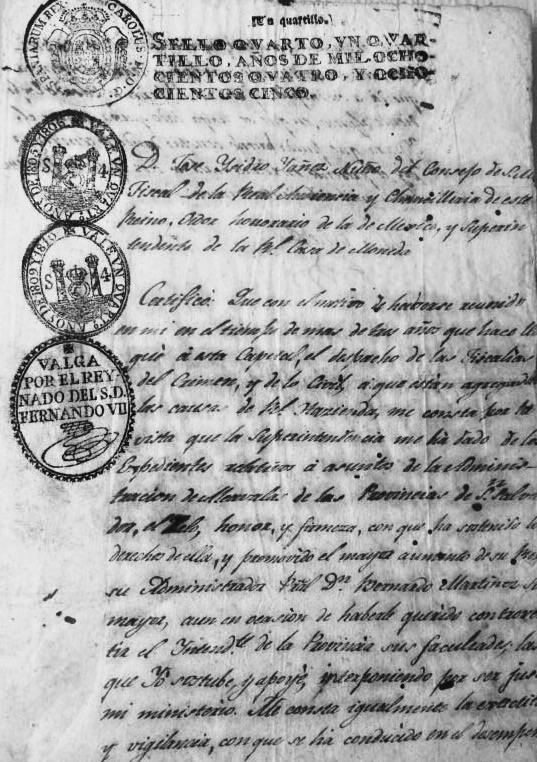 [Un quartillo.]
SELLO QVARTO, VN QVAR-
TILLO, AÑOS DE MIL OCHO-
CIENTOS QVATRO, Y OCHO-
CIENTOS CINCO.
CAROLUS IV D. G. HISPANIARUM REX
VALE UN QUARTº AÑOS DE 1805 Y 1806
S 4
VALE UN QURTº AÑOS DE 1809 Y 1810
S 4
VALGA
POR EL REY-
NADO DEL S.D.
FERNANDO VII
D. Jose Ysidro Yañez Nuño del Consejo de S.M.
Fiscal de la Real Audiencia y Chancilleria de este
Reino, Oidor honorario de la de Mexico, y Superin
tendente de la Rl. Casa de Moneda
Certifico: Que con el motivo de haberse reunido
en mi en el tiempo de mas de tres años que hace lle
gué á esta Capital, el despacho de las Fiscalias
del Crimen, y de lo Civil, á que están agregadas
las causas de Rl. Hazienda, me consta por la
vista que la Superintendencia me ha dado de los
Expedientes relativos á asuntos de la Adminis-
tracion de Alcavalas de las Provincias de Sn. Salva
dor, el Zelo, honor, y firmeza, con que ha sostenido los
derechos de ella, y promovido el mayor aumento de su
su Administrador Dn. Bernardo Martinez
mayor, aun en ocasion de haberle querido controver
tir el Intendte. de la Provincia sus facultades, las
que Yo sostube, y apoyé, interponiendo por ser jus
mi ministerio. Me consta igualmente la exactitud
y vigilancia, con que se ha conducido en el desempeño